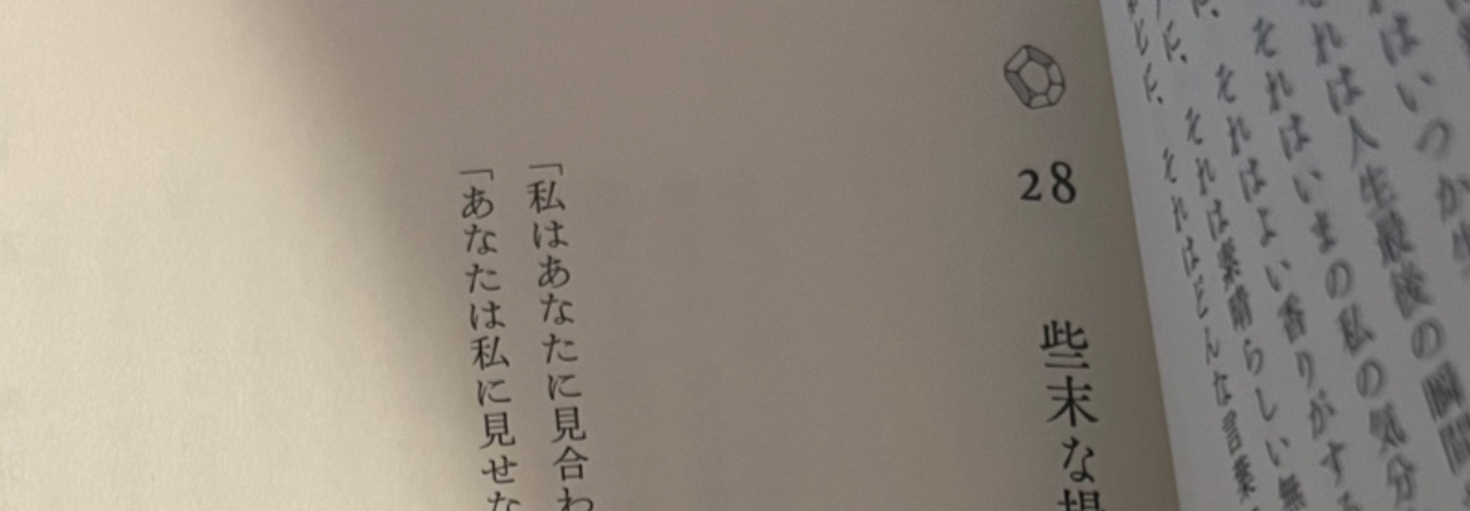 れはいつか生
それは人生最後の瞬間
それはいまの私の気分
、それはよい香りがする
に、それは素晴らしい無
に、それはどんな言葉
28 些末な
「私はあなたに見合わ
「あなたは私に見せな